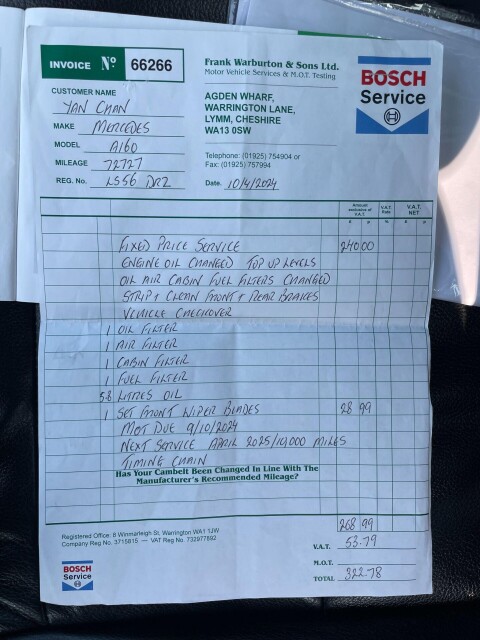 INVOICE Nº 66266
Frank Warburton & Sons Ltd.
Motor Vehicle Services & M.O.T. Testing
BOSCH
Service
CUSTOMER NAME
YAN CHAN
MAKE MERCEDES
MODEL A160
MILEAGE 72727
REG. No. LS56 DRZ
AGDEN WHARF,
WARRINGTON LANE,
LYMM, CHESHIRE
WA13 0SW
Telephone: (01925) 754904 or
Fax: (01925) 757994
Date. 10/4/2024
Amount exclusive of V.A.T. V.A.T. Rate V.A.T. NET
£ p % £ p
FIXED PRICE SERVICE 240.00
ENGINE OIL CHANGED TOP UP LEVELS
OIL AIR CABIN FUEL FILTERS CHANGED
STRIP & CLEAN FRONT & REAR BRAKES
VEHICLE CHECKOVER
1 OIL FILTER
1 AIR FILTER
1 CABIN FILTER
1 FUEL FILTER
5.8 LITRES OIL
1 SET FRONT WIPER BLADES 28 99
MOT DUE 9/10/2024
NEXT SERVICE APRIL 2025/10,000 MILES
TIMING CHAIN
Has Your Cambelt Been Changed In Line With The
Manufacturer's Recommended Mileage?
268.99
Registered Office: 8 Winmarleigh St, Warrington WA1 1JW
Company Reg No. 3715815 — VAT Reg No. 732977892
V.A.T. 53.79
M.O.T.
TOTAL 322.78
BOSCH
Service